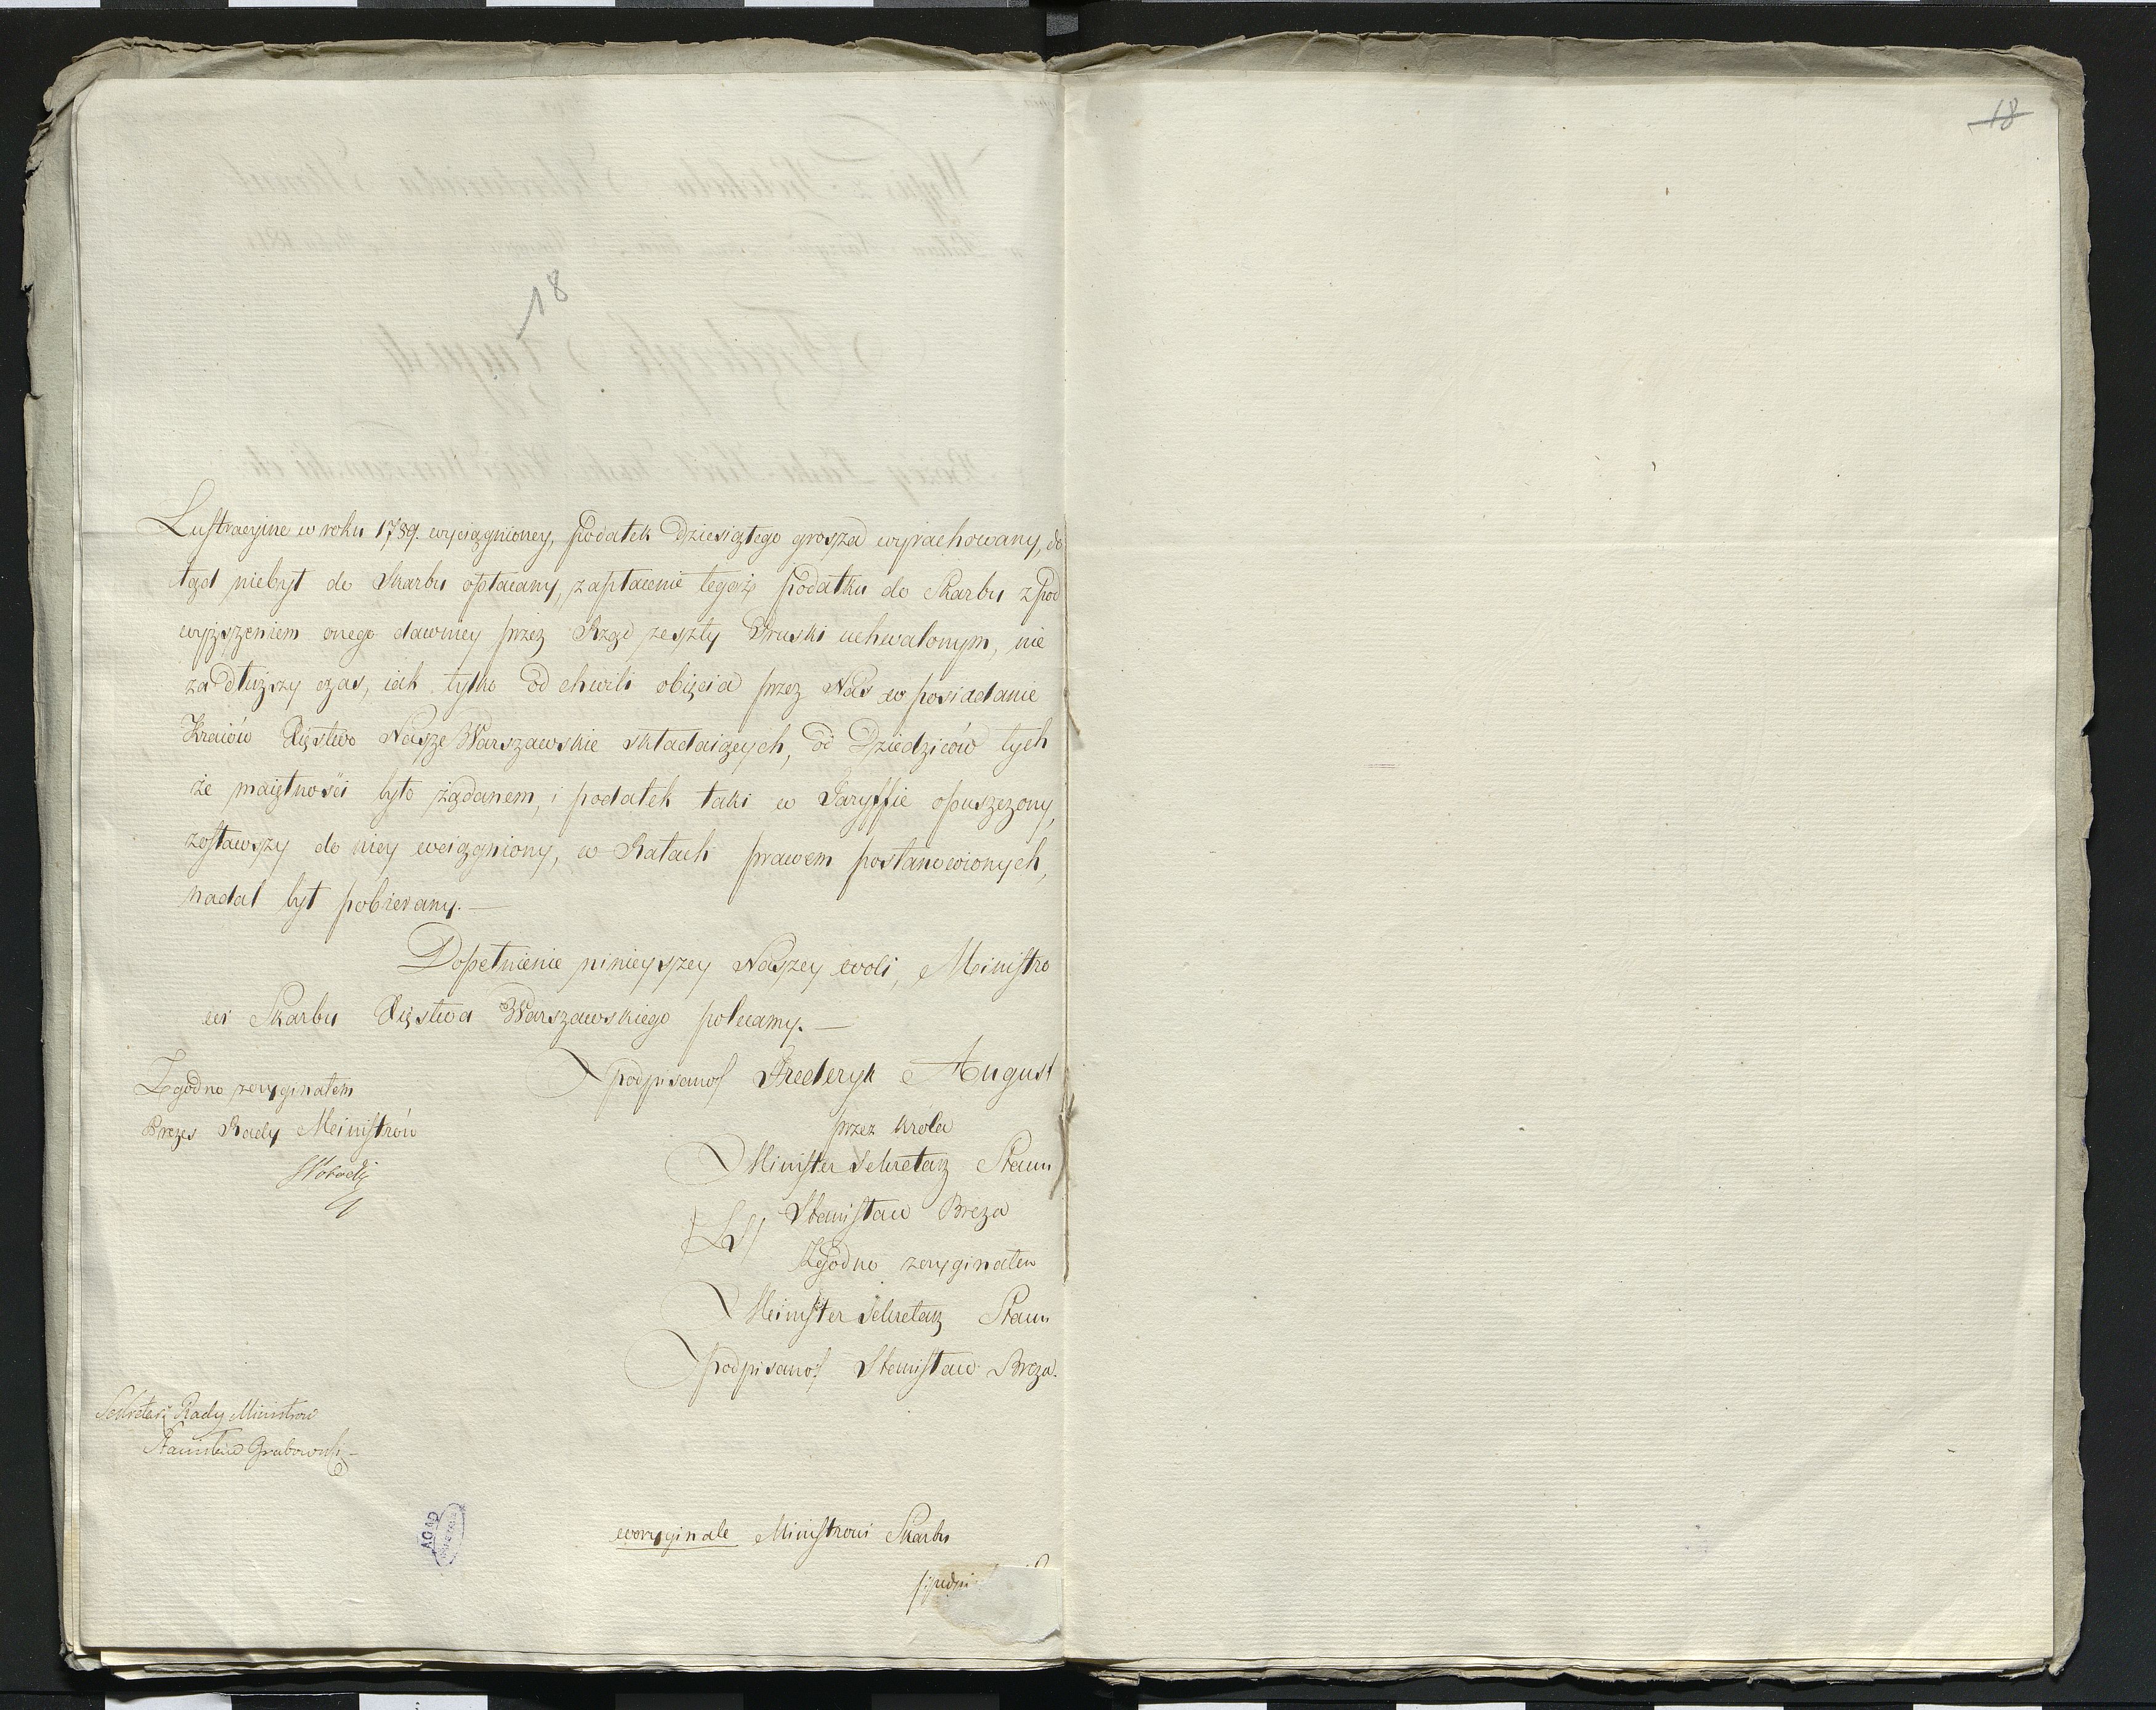 18
18
Lustracyine w roku 1789. wyciągnioney, podatek Dziesiątego grosza wyrachowany, do
tąd niebył do Skarbu opłacany, zapłacenie tegoż podatku do Skarbu z pod
wyższeniem onego dawniey przez Rząd zeszły Pruski uchwalonym, nie
za dłuższy czas, iak tylko od chwili obięcia przez Nas w posiadanie
Kraiów Xięstwo Nasze Warszawskie składaiących, od Dziedziców tych
że maiętności było żądanem, i podatek taki w Taryffie opuszczony,
zostawszy do niey wciągniony, w Ratach prawem postanowionych,
nadal był pobierany.—
Dopełnienie ninieyszey Naszey woli, Ministro
wi Skarbu Xięstwa Warszawskiego polecamy.—
podpisano/ Frederyk August
przez Króla
Minister Sekretarz Stanu
/LS/ Stanisław Breza
Zgodno zoryginałem
Minister Sekretarz Stanu
podpisano/ Stanisław Breza.
Zgodno zoryginałem
Prezes Rady Ministrów
Sekretarz Rady Ministrów
Stanisław Grabowski
AGAD
woryginale Ministrowi Skarbu